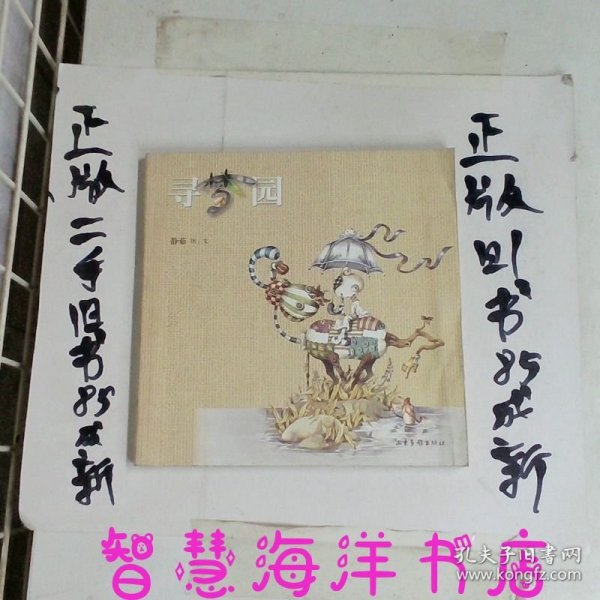 正版二手旧书85成新
寻梦园
静茹 图/文
山东画报出版社
正版旧书85成新
智慧海洋书店
孔夫子旧书网
www.kongfz.com